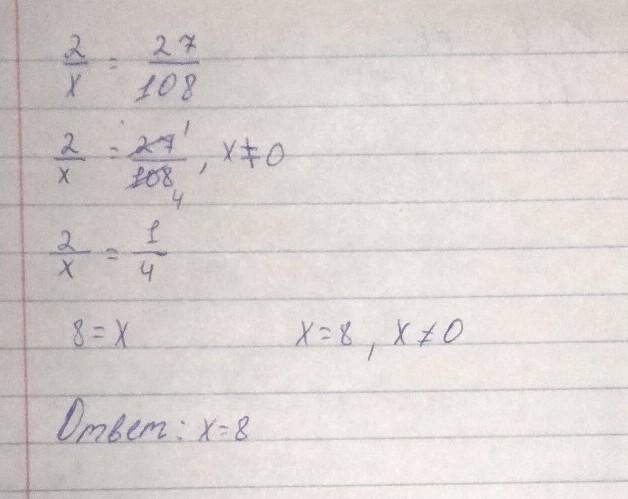 2/x = 27/108
2/x = 27 1/108 4, x ≠ 0
2/x = 1/4
8 = x x = 8, x ≠ 0
Ответ: x = 8